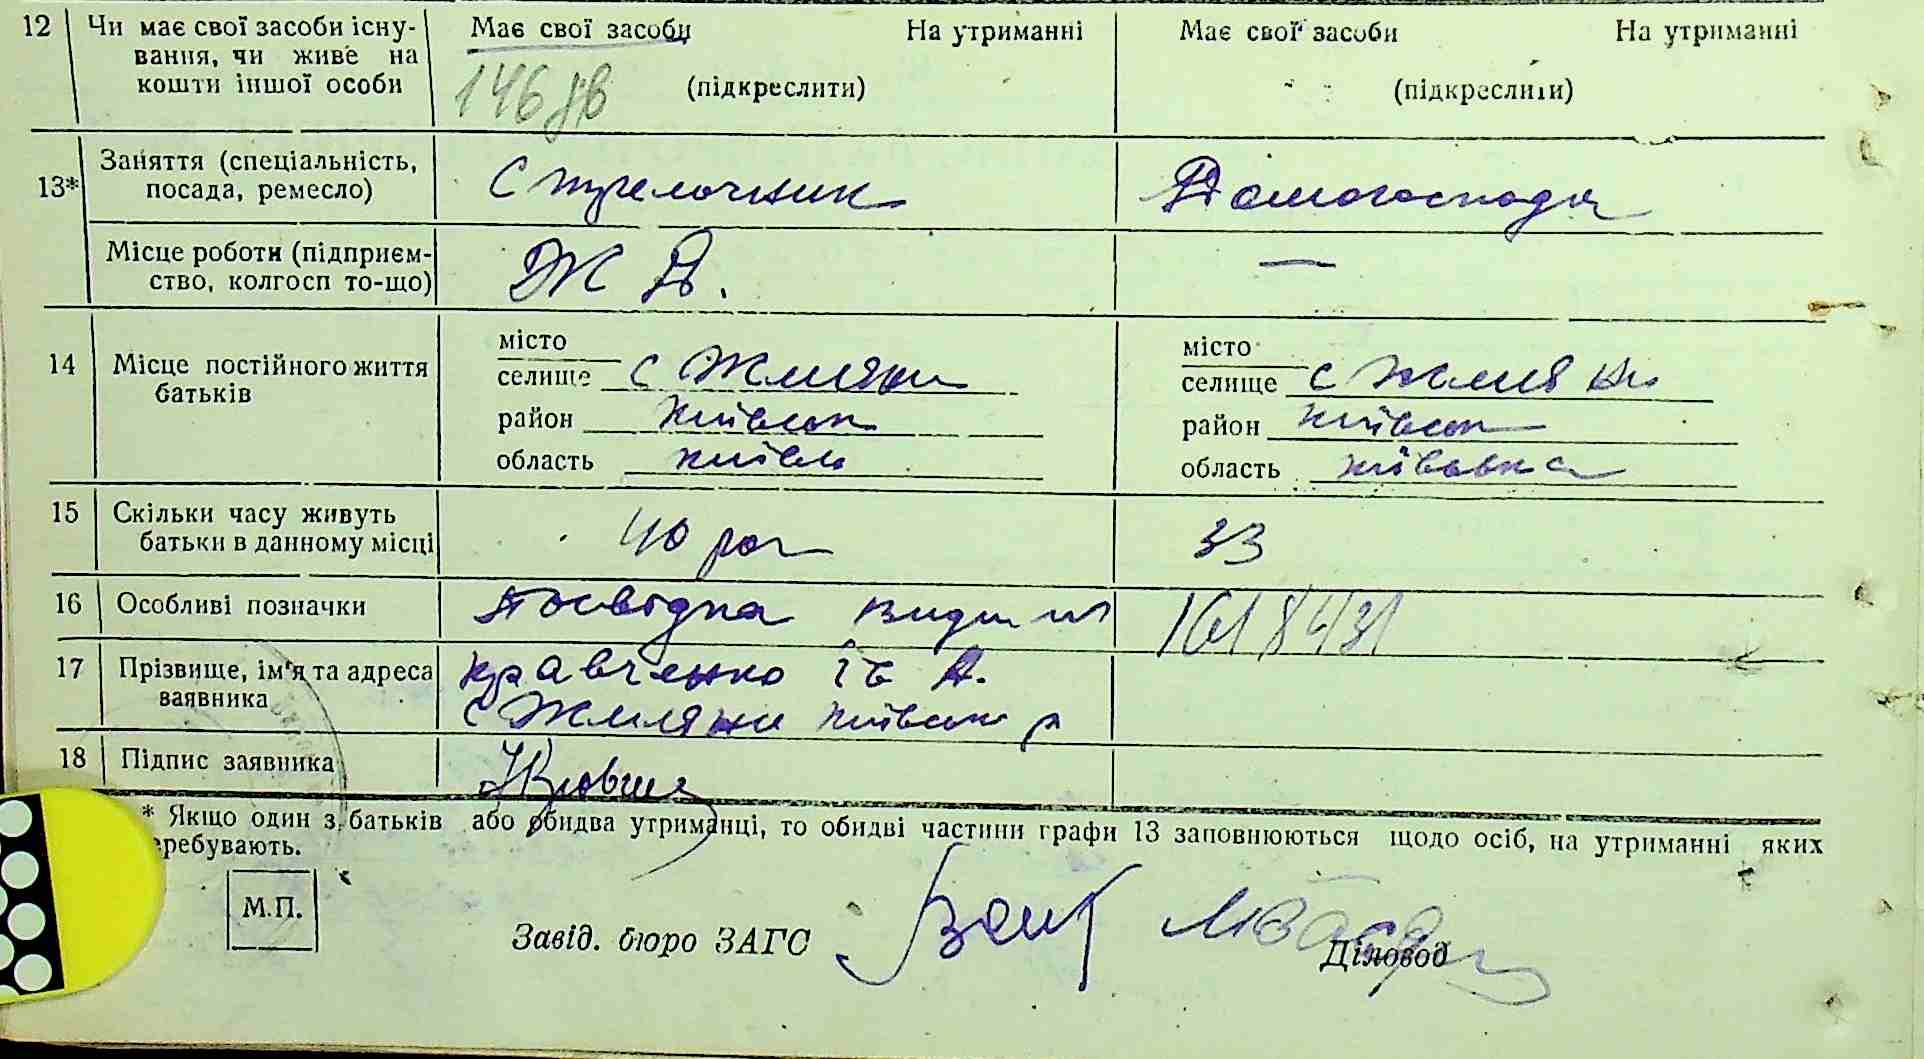 12 Чи має свої засоби існу- Має свої засоби На утриманні Має свої засоби На утриманні
вання, чи живе на
кошти іншої особи 146 (підкреслити) (підкреслити)
Заняття (спеціальність,
13* посада, ремесло) Стрелочник Домогосподар
Місце роботи (підприєм- Ж Д. —
ство, колгосп то-що)
місто місто
14 Місце постійного життя селище с Жиляни селище с Жиляни
батьків район Київськ район Київськ
область київсь область київська
15 Скільки часу живуть 40 рок 33
батьки в данному місці
16 Особливі позначки Посвідка видан 1618431
17 Прізвище, ім'я та адреса Кравченко Ів А.
заявника с Жиляни Київськ р
18 Підпис заявника
* Якщо один з батьків або обидва утриманці, то обидві частини графи 13 заповнюються щодо осіб, на утриманні яких
еребувають.
М.П.
Завід. бюро ЗАГС Діловод